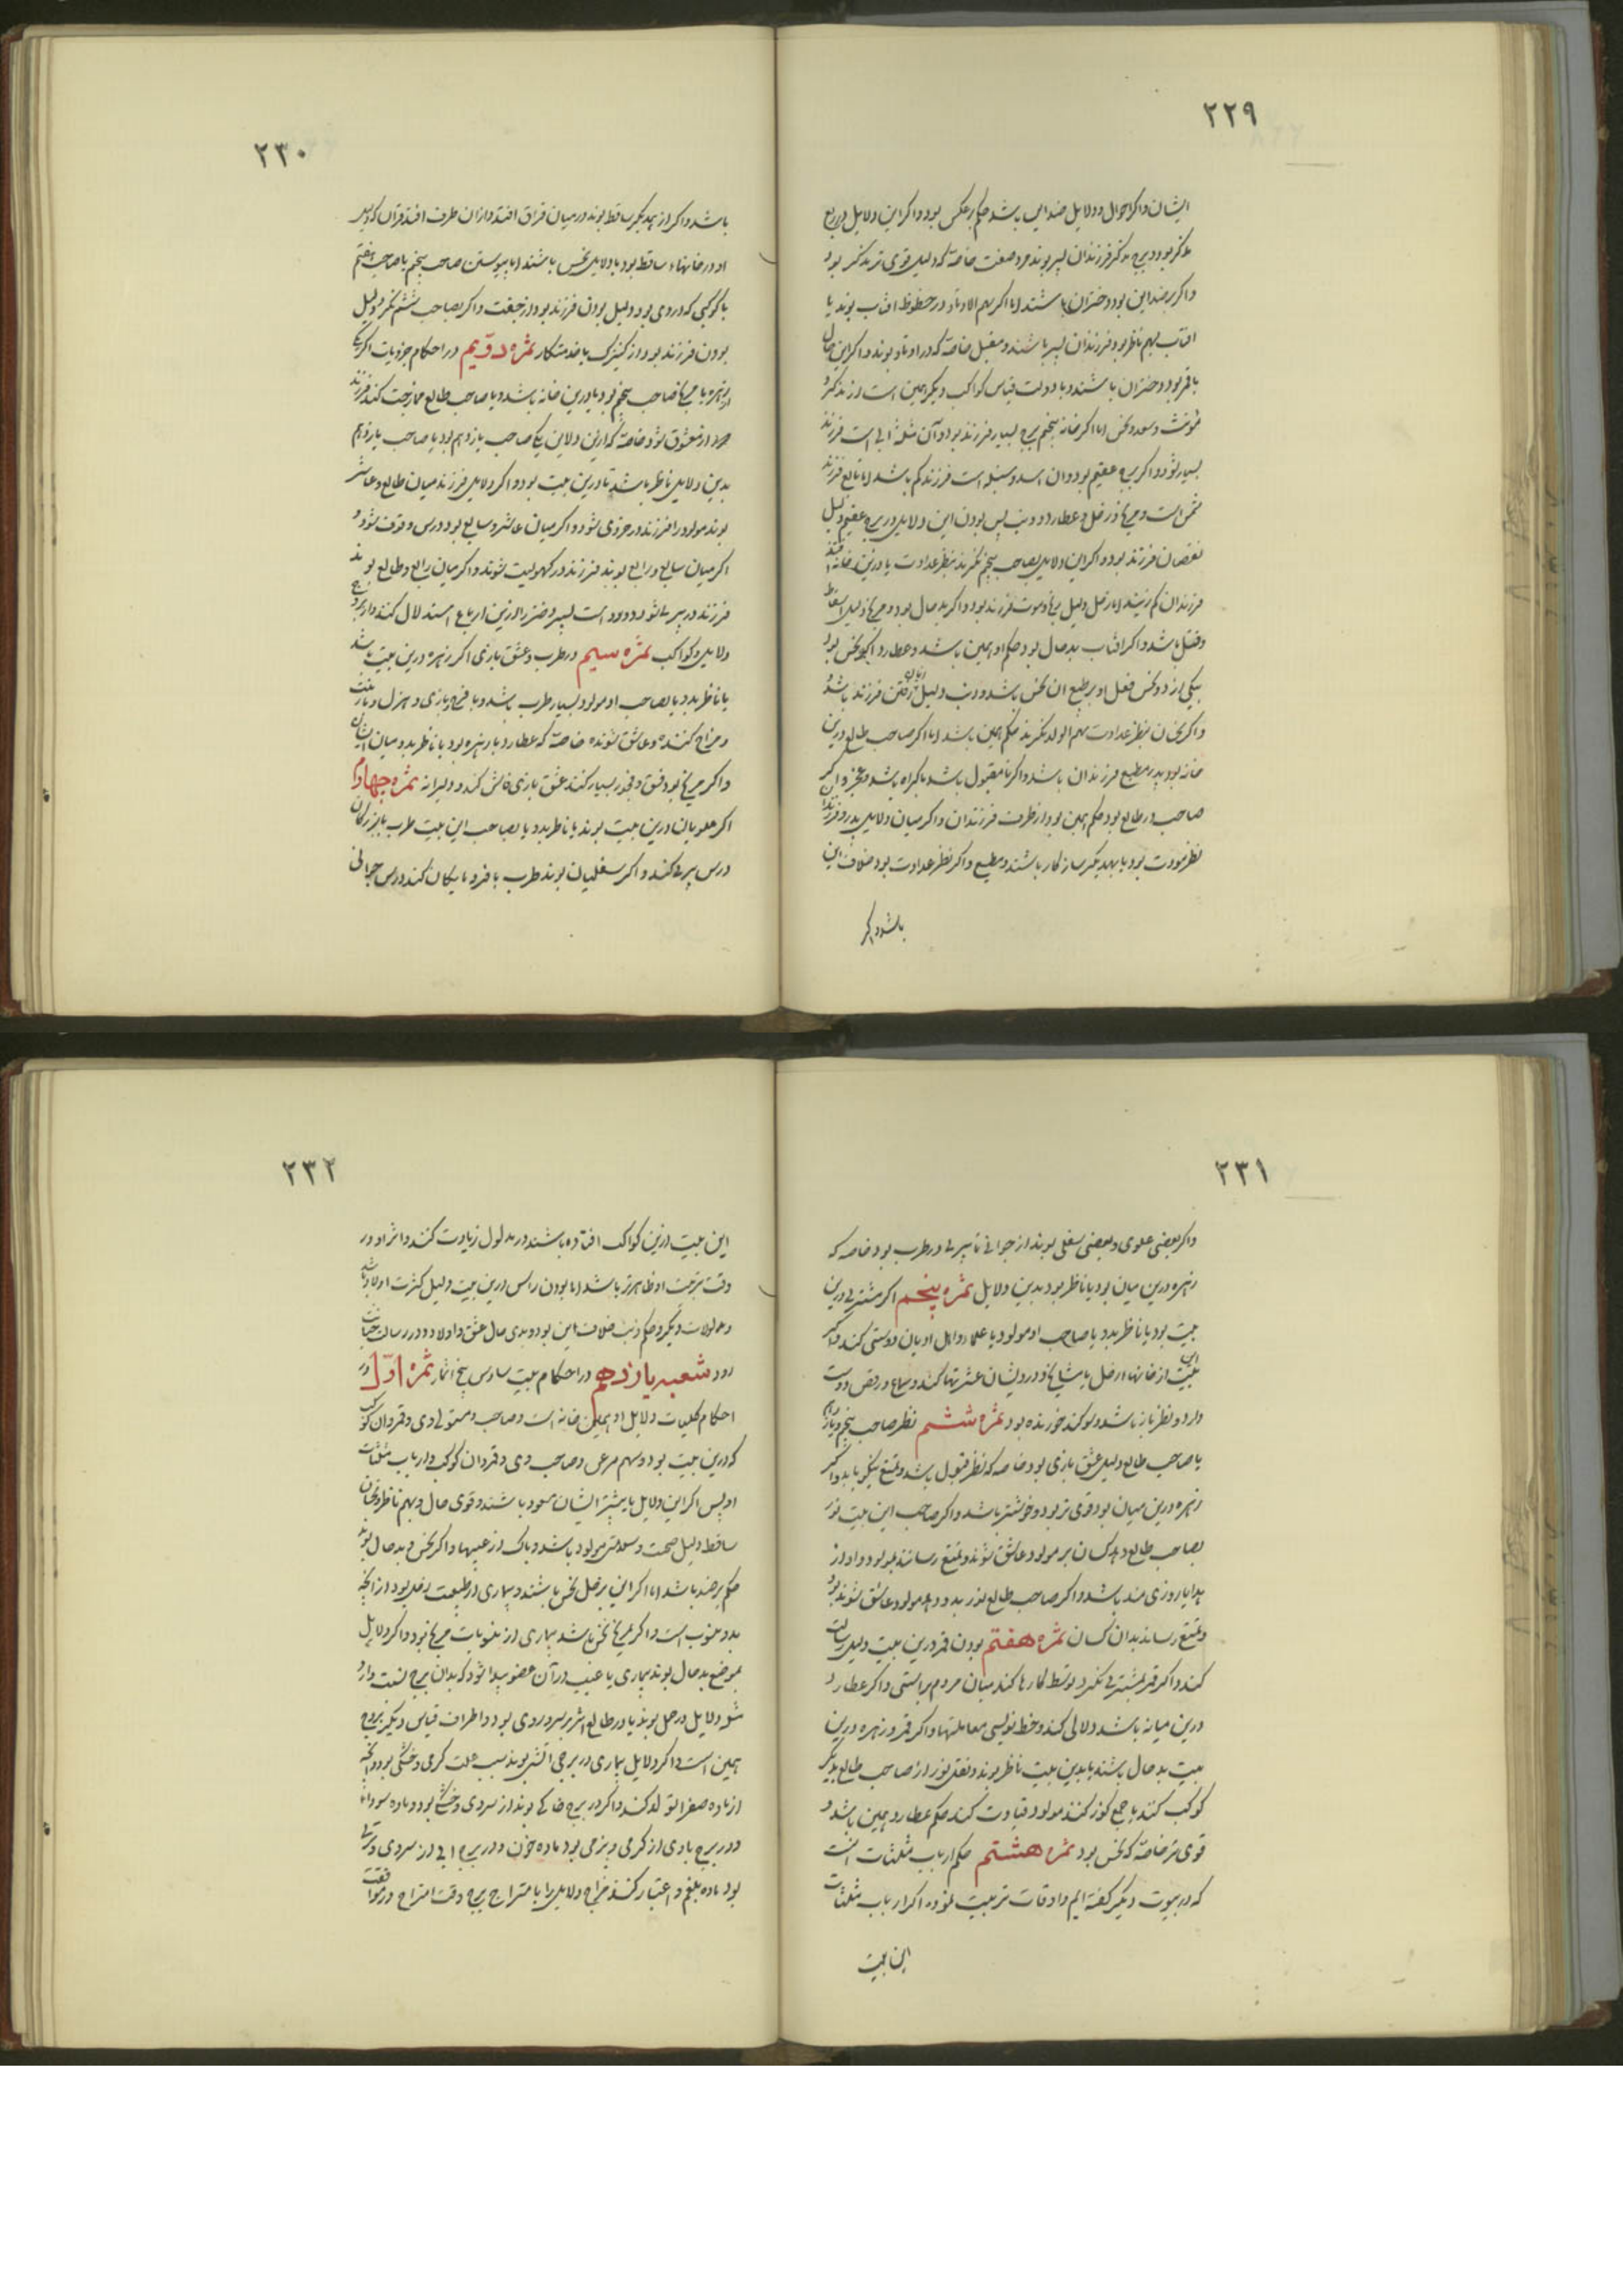 ۲۲۹
ایشان و اکر احوال و دلایل ضد این باشد حکم برعکس بود و اکر این دلایل در ربع
مذکر بود و برج مذکر فرزندان پسر بوند و صفت خاصه که دلیل قوی تر مذکر بود
و اکر بر ضد این بود دختران باشند اما اکر سهم الاولاد در حظوظ افتاب بوند یا
افتاب بهم ناظر بود فرزندان پسر باشند و مقبل خاصه که در اوتاد بوند و اکر این حال
با قمر بود دختران باشند و با دولت قیاس کواکب دیکر همین است از مذکر و
مونث و سعد و نحس اما اکر خانه پنجم برج بسیار فرزند بود و آن مثلثهٔ ابی است فرزند
بسیار شود و اکر برج عقیم بود و ان اسد و سنبله است فرزند کم باشد اما مانع فرزند
نحس است و مریخ و زحل و عطارد و ذنب پس بودن این دلایل در برج عقیم دلیل
نقصان فرزند بود و اکر این دلایل بصاحب پنجم نکرند بنظر عداوت یا درین خانه افتند
فرزندان کم زیند اما زحل دلیل رنج و موت فرزند بود و اکر بدحال بود و مریخ دلیل اسقاط
و قتل باشد و اکر افتاب بدحال بود حکم او همین باشد و عطارد اکر نحس بود
بیکی از دو نحس فعل او بر طبع ان نحس باشد و ذنب دلیل رفتن فرزند باشد
و اکر نحسان بنظر عداوت بسهم الولد نکرند حکم همین باشد اما اکر صاحب طالع درین
خانه بود پدر مطیع فرزندان باشد و اکر نامقبول باشد باکراه باشد و عجز و اکر
صاحب در طالع بود حکم همین بود از طرف فرزندان و اکر میان دلایل پدر و فرزند
نظر مودت بود با یکدیکر سازکار باشند و مطیع و اکر نظر عداوت بود خلاف این
باشد و اکر
۲۳۰
باشد و اکر از یکدیکر ساقط بوند در میان فراق افتد و ازان طرف افتد فراق که دلیل
او در خانهاء ساقط بود یا دلایل نحس باشند اما پیوستن صاحب پنجم با صاحب هفتم
یا کوکبی که در وی بود دلیل بودن فرزند بود از جفت و اکر بصاحب ششم نکرد دلیل
بودن فرزند بود از کنیزک یا خدمتکار ثمره دویم در احکام جزویات اکر یکی
از زهره یا مریخ صاحب پنجم بود یا درین خانه باشد و با صاحب طالع ممازجت کند فرزند
از معشوق شود خاصه که ازین دلاین یکی صاحب یازدهم بود یا صاحب یازدهم
بدین دلایل ناظر باشد یا درین بیت بود و اکر دلایل فرزند میان طالع و عاشر
بوند مولود را فرزند در خردی شود و اکر میان عاشر و سابع بود در سن وقوف شود و
اکر میان سابع و رابع بوند فرزند در کهولیت شوند و اکر میان رابع و طالع بوند
فرزند در پیری شود و بود است پسر و دختر را ازین ارباع استدلال کنند و از بروج
دلایل و کواکب ثمره سیم در طرب و عشق بازی اکر زهره درین بیت باشد
یا ناظر بدو یا بصاحب او مولود بسیار طرب باشد و با فرح و بازی و هزل و بازیت
و مزاح کننده و عاشق شونده خاصه که عطارد با زهره بود یا ناظر بدو میان ایشان
و اکر مریخ بود فسق و فجور بسیار کند عشق بازی فاش کند و دلیرانه ثمره چهارم
اکر علویان درین بیت بوند یا ناظر بدو یا بصاحب این بیت طرب با بزرکان
در سن پیری کند و اکر سفلیان بوند طرب با فرومایکان کند در سن جوانی
۲۳۱
و اکر بعضی علوی و بعضی سفلی بوند از جوانی تا پیری در طرب بود خاصه که
زهره درین میان بود یا ناظر بود بدین دلایل ثمره پنجم اکر مشتری درین
بیت بود یا ناظر بدو یا صاحب او مولود با علما و اهل ادیان دوستی کند و اکر
این بیت از خانهاء زحل با مشایخ و درویشان عشرتها کند و سماع و رقص دوست
دارد و نظرباز باشد و سوکند خورنده بود ثمره ششم نظر صاحب پنجم و یازدهم
با صاحب طالع دلیل عشق بازی بود خاصه که نظر قبول باشد و تمتع نیکو یابد و اکر
زهره درین میان بود قوی تر بود و خوشتر باشد و اکر صاحب این بیت نور
بصاحب طالع دهد کسان بر مولود عاشق شوند و تمتع رسانند بمولود و او از
هدایا روزی مند باشد و اکر صاحب طالع نور بدو دهد مولود عاشق شونده بود
و تمتع رساند بدان کسان ثمره هفتم بودن قمر درین بیت دلیل رسالت
کند و اکر قمر بمشتری نکرد توسط کارها کند میان مردم براستی و اکر عطارد
درین میانه باشد دلالی کند و خط نویسی معاملتها و اکر قمر و زهره درین
بیت بدحال باشند یا بدین بیت ناظر بوند و نقل نور از صاحب طالع بدیکر
کوکب کنند یا جمع نور کنند مولود قیادت کند حکم عطارد همین باشد و
قوی تر خاصه که نحس بود ثمره هشتم حکم ارباب مثلثات است
که در بیوت دیکر کفته ایم و اوقات تربیت نموده اکر ارباب مثلثات
این بیت
۲۳۲
این بیت ازین کواکب افتاده باشند در مدلول زیادت کنند و اثر او در
وقت تربیت او ظاهرتر باشد اما بودن راس درین بیت دلیل کثرت اولاد باشد
و مدلولات دیکر و حکم ذنب خلاف این بود و بدی حال عشق و اولاد و در رسالت خیانت
رود شعبه یازدهم در احکام بیت سادس پنج اثمار ثمره اول در
احکام کلیات دلایل او همین خانه است و صاحب و مستولی وی و قمر و ان کوکب
که درین بیت بود و سهم مرض و صاحب وی و قمر و ان کوکب و ارباب مثلثات
او پس اکر این دلایل یا بیشتر ایشان مسعود باشند و قوی حال و بهم ناظر و نحسان
ساقط دلیل صحت و سلامتی مولود باشد و پاک از عیبها و اکر نحس و بدحال بوند
حکم برضد باشد اما اکر این بزحل نحس باشند و بیماری از طبیعت زحل بود از انچه
بدو منسوب است و اکر بمریخ نحس باشد بیماری از منسوبات مریخ بود و اکر دلایل
بموضع بدحال بوند بیماری یا عیب در آن عضو پیدا شود که بدان برج نسبت دارد
مثل دلایل در حمل بوند یا در طالع اثر بر سر و روی بود و اطراف قیاس دیکر بروج
همین است و اکر دلایل بیماری در برجی آتشی بوند سبب علت کرمی و خشکی بود و انچه
از ماده صفرا تولد کند و اکر در برج خاکی بوند از سردی و خشکی بود و ماده سودا
و در برج بادی از کرمی و نرمی بود ماده خون و در برج ابی از سردی و تری
بود ماده بلغم و اعتبار کنند مزاج دلایل را با متزاج برج وقت امتزاج در موافقت